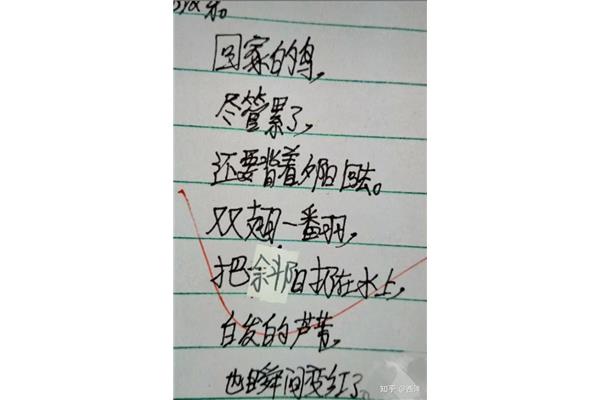 回家的鸟，
尽管累了，
还要背着夕阳回去。
双翅一翻，
把斜阳扔在水上，
白发的芦苇，
也瞬间变红了。
知乎 @逸渏